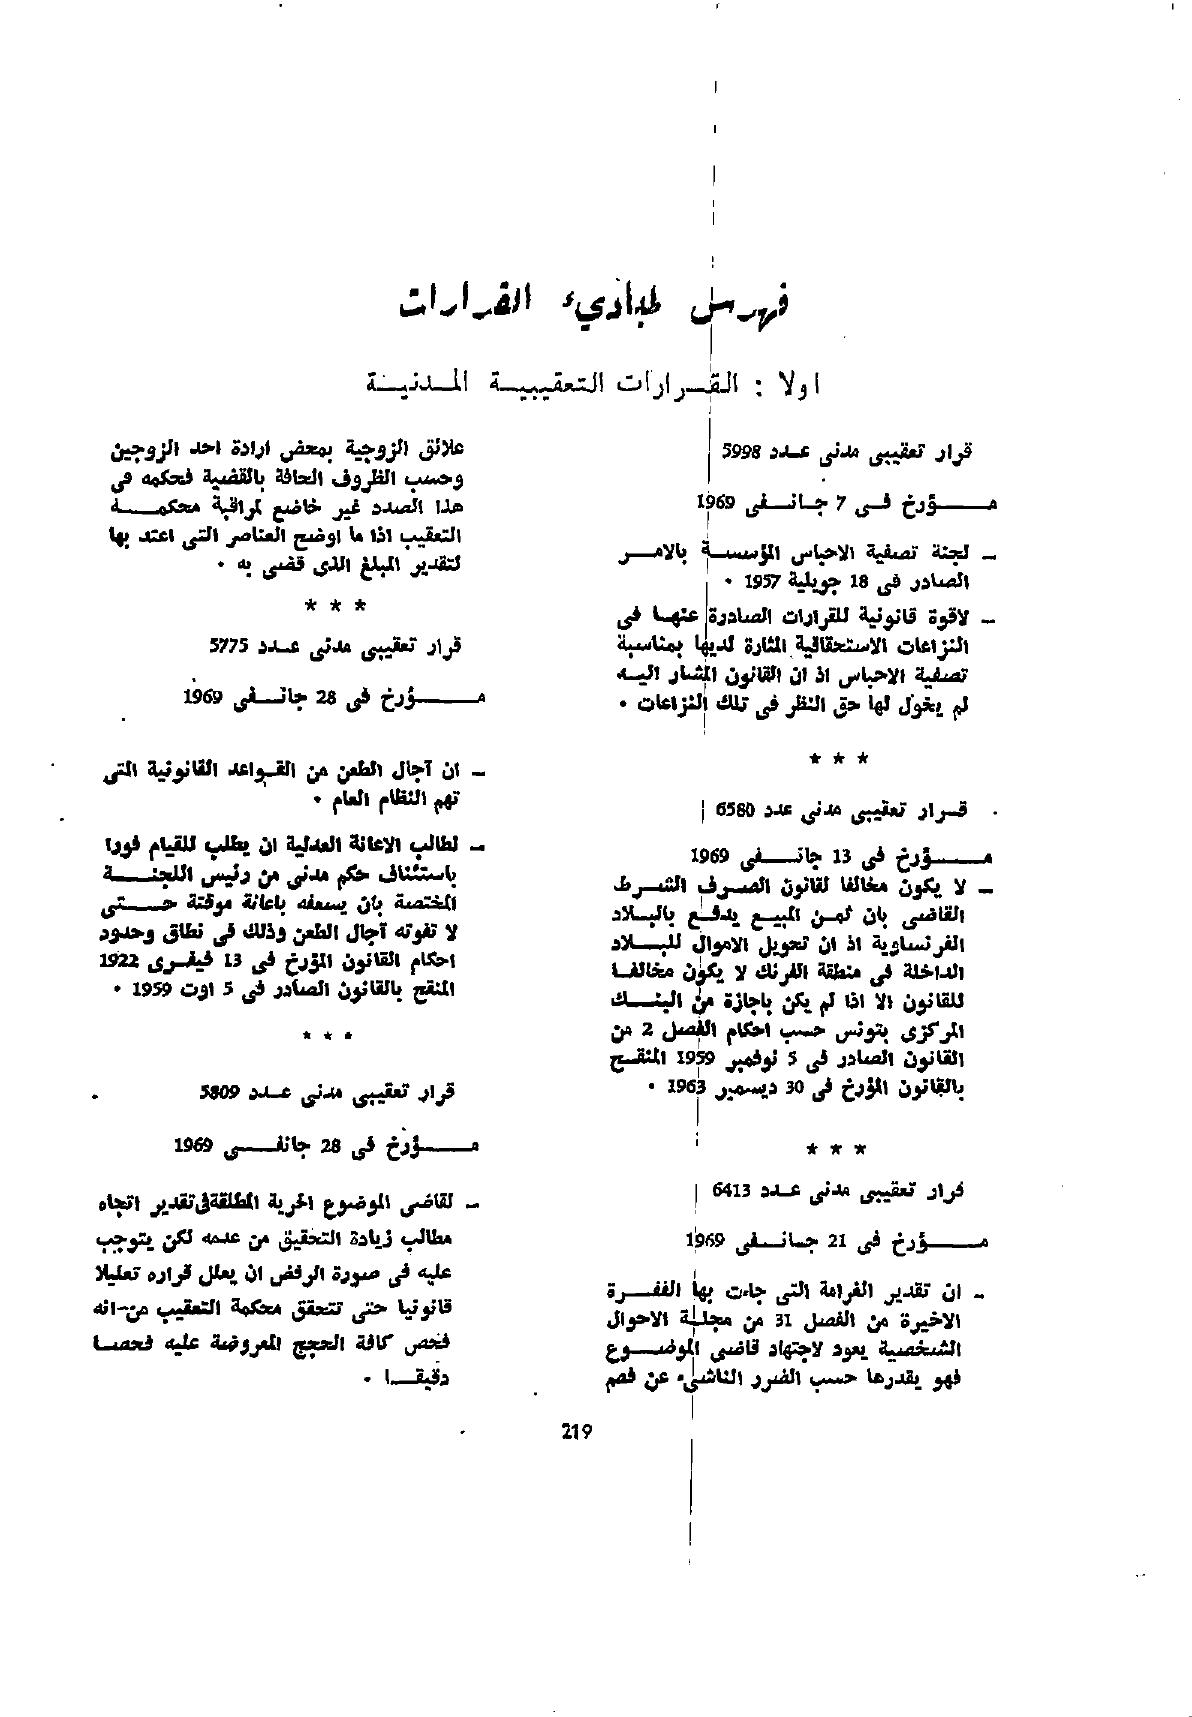 فهرس لمباديء القرارات
اولا : القرارات التعقيبية المدنية
قرار تعقيبى مدنى عدد 5998
مؤرخ فى 7 جانفى 1969
– لجنة تصفية الاحباس المؤسسة بالامر
الصادر فى 18 جويلية 1957 •
– لاقوة قانونية للقرارات الصادرة عنها فى
النزاعات الاستحقاقية المثارة لديها بمناسبة
تصفية الاحباس اذ ان القانون المشار اليه
لم يخول لها حق النظر فى تلك النزاعات •
* * *
قرار تعقيبى مدنى عدد 6580
مؤرخ فى 13 جانفى 1969
– لا يكون مخالفا لقانون الصرف الشرط
القاضى بان ثمن المبيع يدفع بالبلاد
الفرنساوية اذ ان تحويل الاموال للبلاد
الداخلة فى منطقة الفرنك لا يكون مخالفا
للقانون الا اذا لم يكن باجازة من البنك
المركزى بتونس حسب احكام الفصل 2 من
القانون الصادر فى 5 نوفمبر 1959 المنقح
بالقانون المؤرخ فى 30 ديسمبر 1963 •
* * *
قرار تعقيبى مدنى عدد 6413
مؤرخ فى 21 جانفى 1969
– ان تقدير الغرامة التى جاءت بها الفقرة
الاخيرة من الفصل 31 من مجلة الاحوال
الشخصية يعود لاجتهاد قاضى الموضوع
فهو يقدرها حسب الضرر الناشىء عن فصم
علائق الزوجية بمحض ارادة احد الزوجين
وحسب الظروف الحافة بالقضية فحكمه فى
هذا الصدد غير خاضع لمراقبة محكمة
التعقيب اذا ما اوضح العناصر التى اعتد بها
لتقدير المبلغ الذى قضى به •
* * *
قرار تعقيبى مدنى عدد 5775
مؤرخ فى 28 جانفى 1969
– ان آجال الطعن من القواعد القانونية التى
تهم النظام العام •
– لطالب الاعانة العدلية ان يطلب للقيام فورا
باستئناف حكم مدنى من رئيس اللجنة
المختصة بان يسعفه باعانة موقتة حتى
لا تفوته آجال الطعن وذلك فى نطاق وحدود
احكام القانون المؤرخ فى 13 فيفرى 1922
المنقح بالقانون الصادر فى 5 اوت 1959 •
* * *
قرار تعقيبى مدنى عدد 5809
مؤرخ فى 28 جانفى 1969
– لقاضى الموضوع الحرية المطلقة فى تقدير اتجاه
مطالب زيادة التحقيق من عدمه لكن يتوجب
عليه فى صورة الرفض ان يعلل قراره تعليلا
قانونيا حتى تتحقق محكمة التعقيب من انه
فحص كافة الحجج المعروضة عليه فحصا
دقيقا •
219